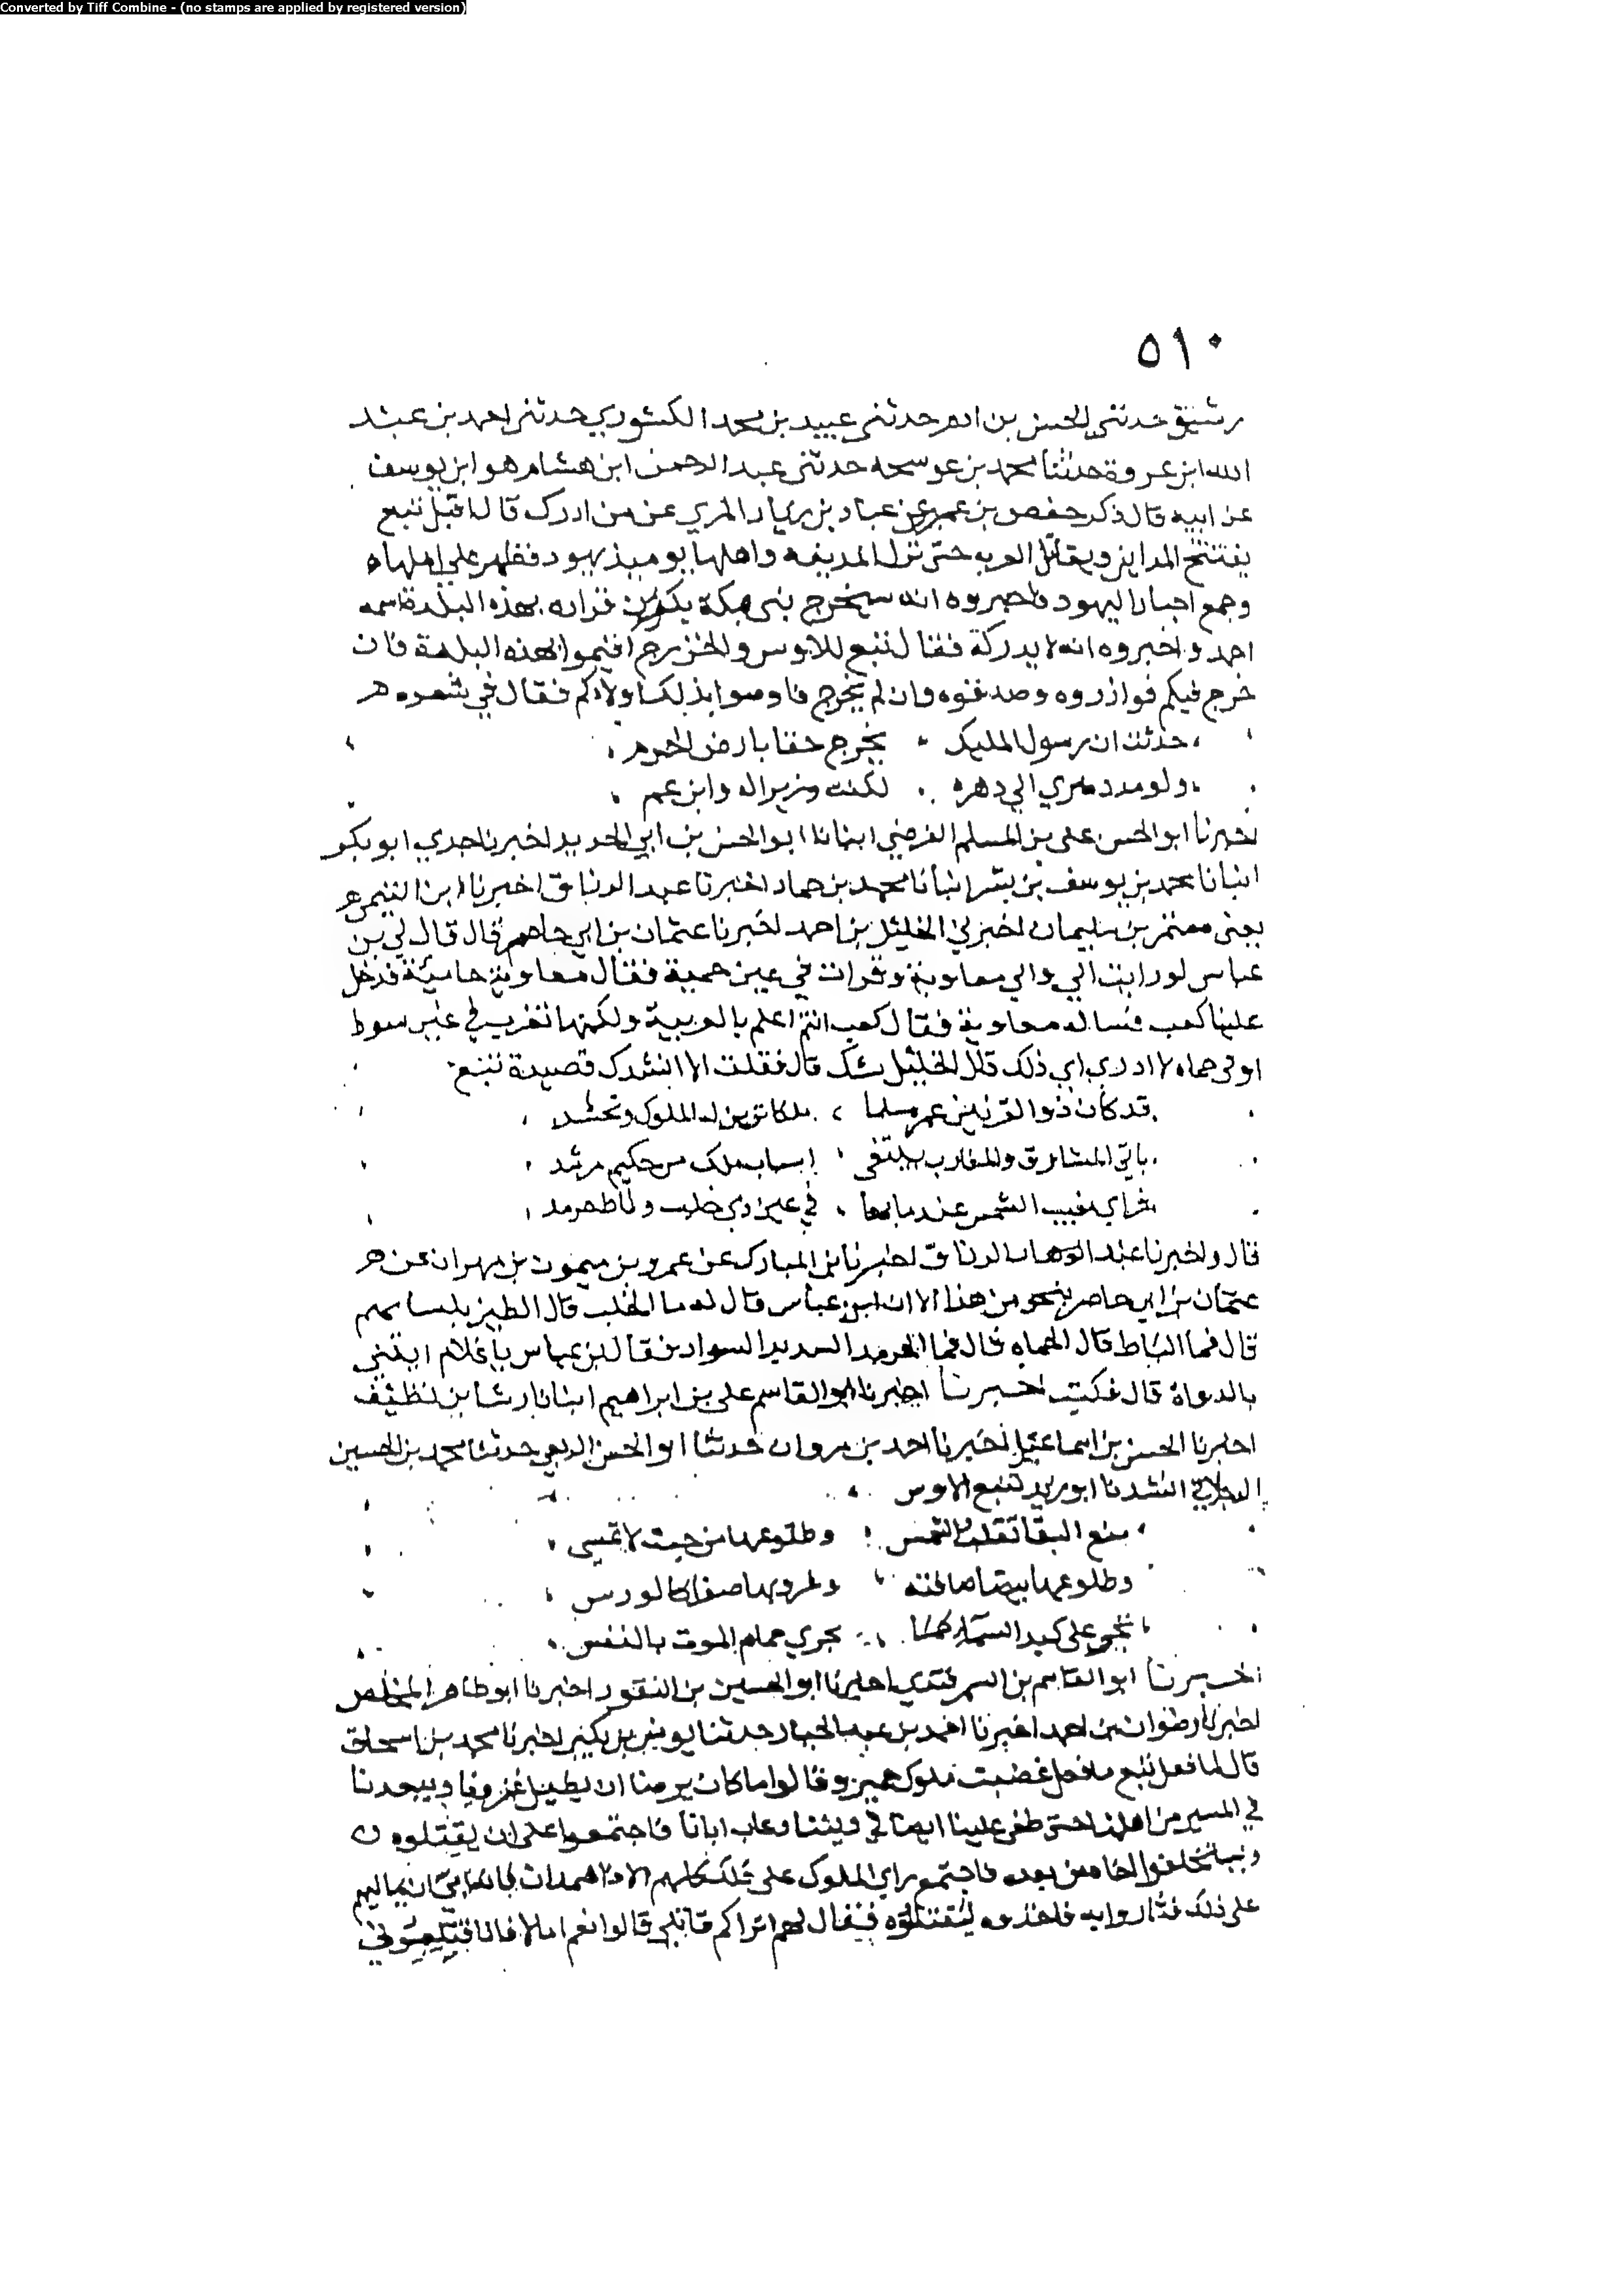 Converted by Tiff Combine - (no stamps are applied by registered version)
٥١٠
رشيق حدثني الحسن بن ادم حدثني عبيد بن محمد الكشوري حدثني احمد بن عبد
الله ابن عروة حدثنا محمد بن عوسجه حدثني عبد الرحمن ابن هشام هو ابن يوسف
عن ابيه قال ذكر حفص بن عمر عن عباد بن زياد المري عن من ادرك قال اقبل تبع
يفتتح المداين ويقاتل العرب حتى نزل المدينه واهلها يوميذ يهود فظهر على اهلها
وجمع احبار اليهود فاخبروه انه سيخرج نبي بمكة يكون قراره بهذه البلدة اسمه
احمد واخبروه انه لا يدركة فقال تبع للاوس والخزرج اقيموا بهذه البلدة فان
خرج فيكم فوازروه وصدقوه وان لم يخرج فاوصوا بذلك اولادكم فقال في شعره
حدثت ان رسول المليك يخرج حقا بارض الحرم
ولو مد دهري الي دهره لكنت وزيرا له وابن عم
اخبرنا ابو الحسن علي بن المسلم الفرضي انبانا ابو الحسن بن ابي الحديد اخبرنا جدي ابو بكر
انبانا محمد بن يوسف بن بشر انبانا محمد بن حماد اخبرنا عبد الرزاق اخبرنا ابن التيمي
يعني معتمر بن سليمان اخبرني الخليل بن احمد اخبرنا عثمان بن ابي حاضر قال قال لي بن
عباس لو رايت الي والي معاوية وقرات في عين حمية فقال معاوية حامية فدخل
علينا كعب فساله معاوية فقال كعب انتم اعلم بالعربية ولكنها تغرب في عين سوط
او في حماه لا ادري اي ذلك قال الخليل شك قال فقلت الا انشدك قصيدة تبع
قد كان ذو القرنين عمر مسلما ملكا تدين له الملوك وتحشد
ياتي المشارق والمغارب يبتغي اسباب ملك من حكيم مرشد
فراي مغيب الشمس عند مابها في عين ذي خلب وثاط حرمد
قال واخبرنا عبد الوهاب الرزاق اخبرنا بن المبارك عن عمرو بن ميمون بن مهران عن
عثمان بن ابي حاضر بنحو من هذا الا ان ابن عباس قال له ما الخلب قال الطين بلسانهم
قال فما الثاط قال الحماه قال فما الحرمد الشديد السواد فقال بن عباس يا غلام ايتني
بالدواة قال فكتب اخبرنا اخبرنا ابو القاسم علي بن ابراهيم انبانا رشا بن نظيف
اخبرنا الحسن بن اسماعيل اخبرنا احمد بن مروان حدثنا ابو الحسن الربعي حدثنا محمد بن الحسين
انشدنا ابو زيد لتبع الاوس
منع البقا تقلب الشمس وطلوعها من حيث لا تمسي
وطلوعها بيضا صافيه وغروبها صفرا كالورس
تجري على كبد السماء كما يجري حمام الموت بالنفس
اخبرنا ابو القاسم بن السمرقندي اخبرنا ابو الحسين بن النقور اخبرنا ابو طاهر المخلص
اخبرنا رضوان بن احمد اخبرنا احمد بن عبد الجبار حدثنا يونس بن بكير اخبرنا محمد بن اسحاق
قال لما فعل تبع ما فعل غضبت ملوك حمير وقالوا ما كان يرضا ان يطيل غزونا ويبعدنا
في المسير من اهلنا حتى طغى علينا ايضا في ديننا وعاب ابانا فاجتمعوا على ان يقتلوه
ويستخلفوا اخاه من بعده فاجتمع راي الملوك على ذلك كلهم الا ذا همدان فانه ابى ان يماليهم
على ذلك فثاروا به فاخذوه ليقتلوه فقال لهم اتراكم قاتلي قالوا نعم اما لا فاذا قتلتموني